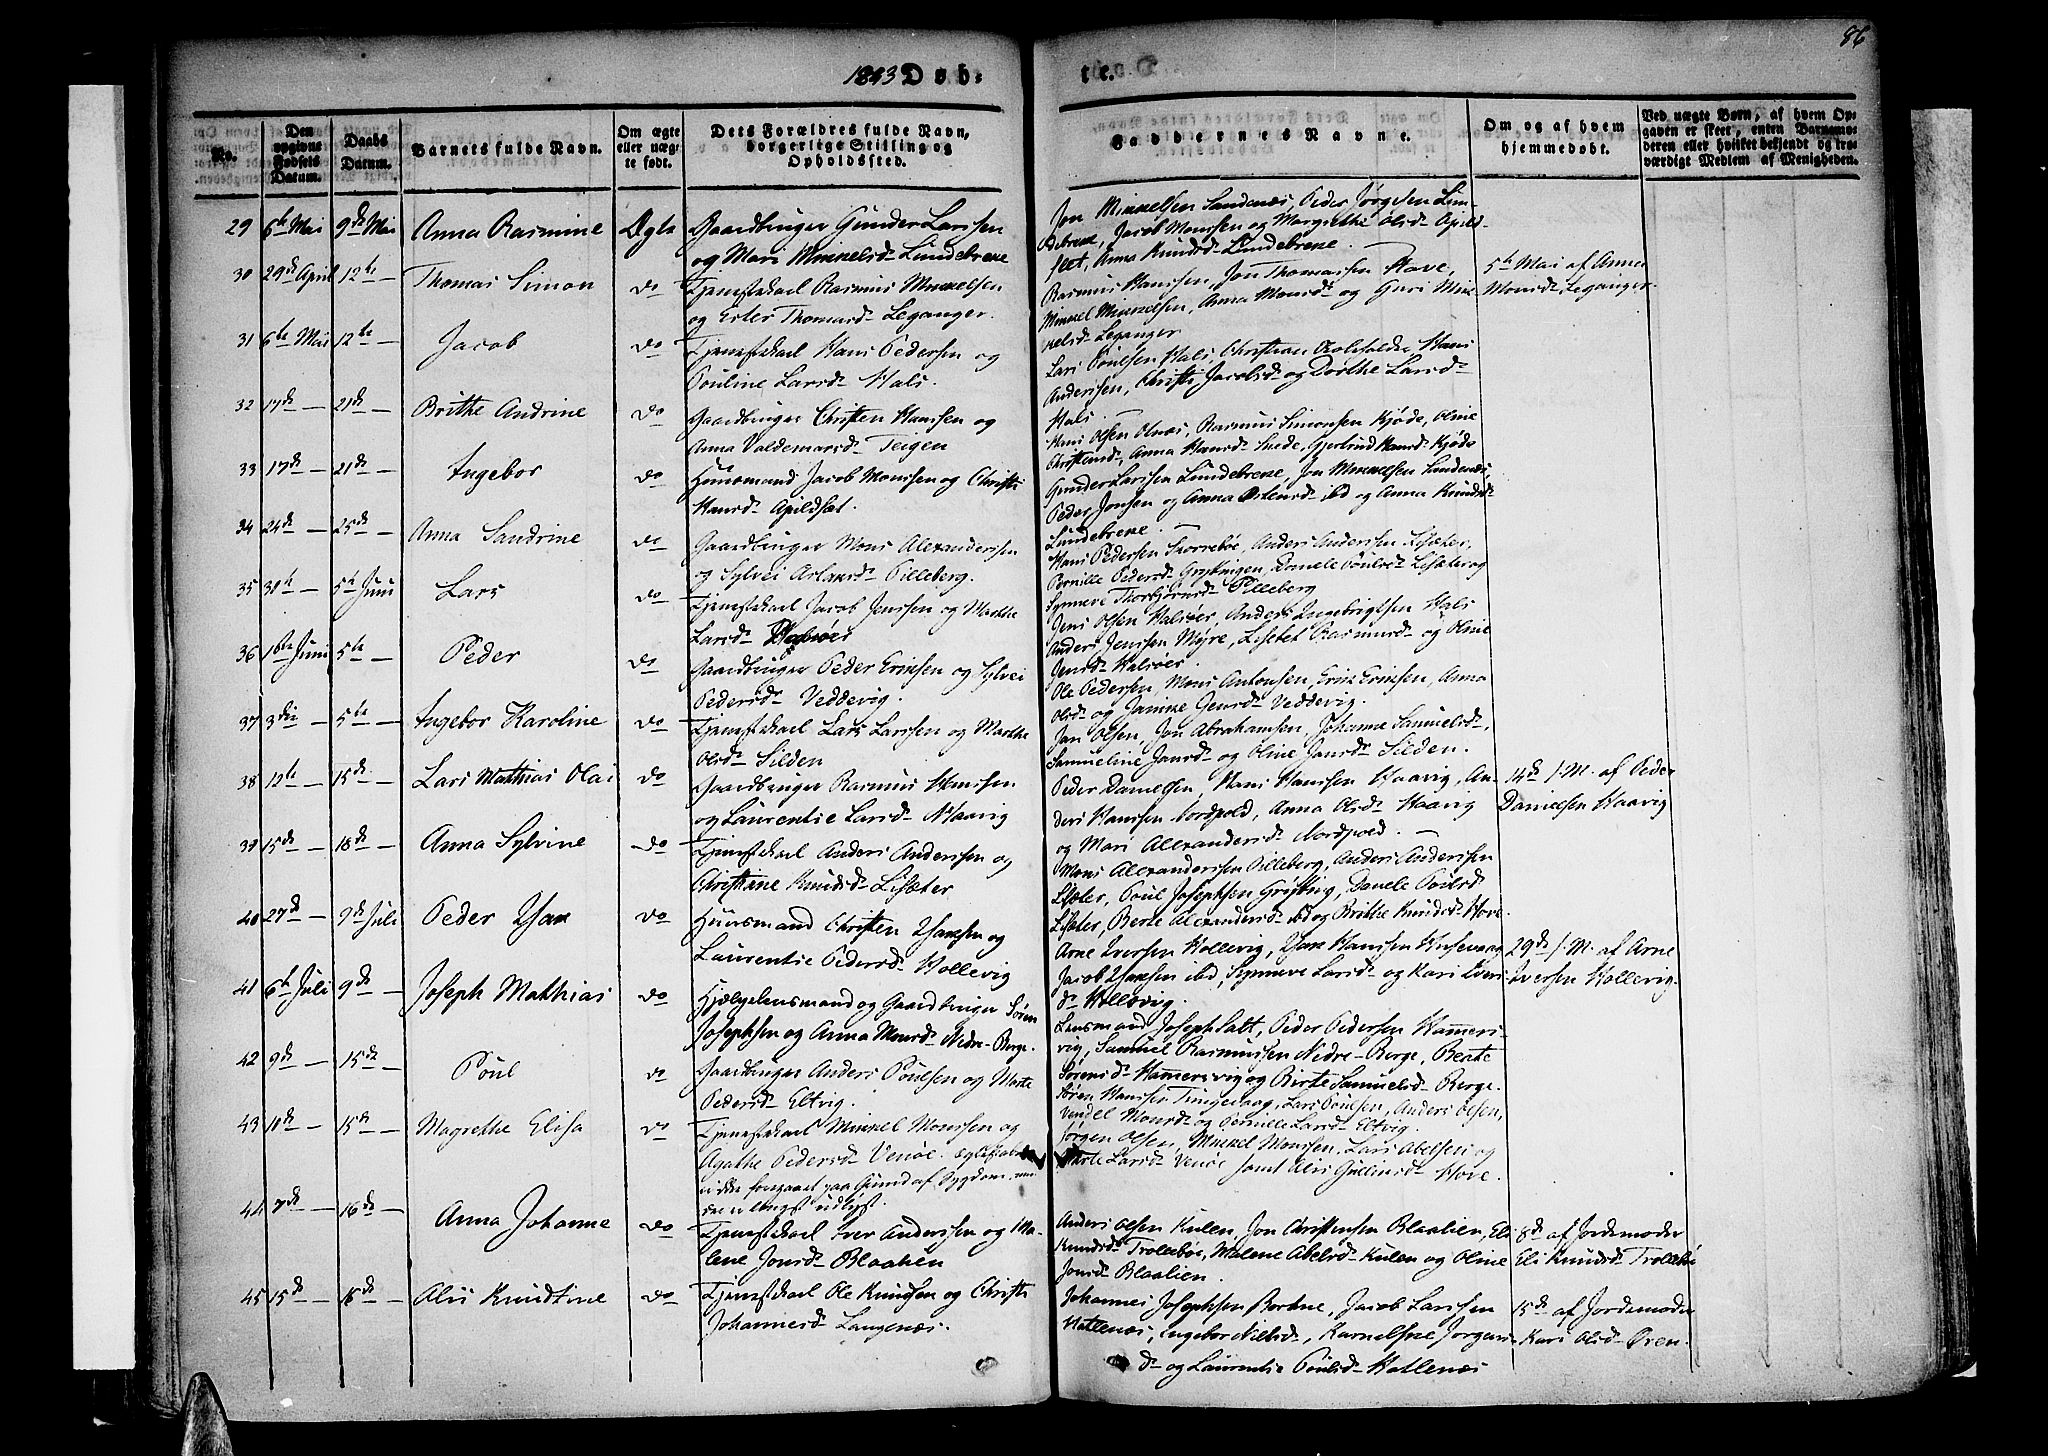 86
1843 Døb-
te.
No.
Den opgivne Fødsels Datum.
Daabs Datum.
Barnets fulde Navn.
Om ægte eller uægte født.
Dets Forældres fulde Navn, borgerlige Stilling og Opholdssted.
Faddernes Navne.
Om og af hvem hjemmedøbt.
Ved uægte Børn, af hvem Opgaven er skeet, enten Barnemoderen eller hvilket bekjendt og troværdigt Medlem af Menigheden.
29 6te Mai 9de Mai Anna Rasmine Ægte Gaardbruger Gunder Larssen
og Mari Mikkelsd. Lundebrekke
Jon Mikkelsen Sandenæs, Peder Jørgsen Lun-
debrekke, Jacob Monssen og Margrethe Olsd. Apild-
sæt, Anna Knudsd. Lundebrekke.
30 29de April 12te — Thomas Simon do Tjenestekarl Rasmus Mikkelsen
og Ester Thomasd. Leganger.
Rasmus Hanssen, Jon Thomassen Hove,
Mikkel Mikkelsen, Anna Monsd. og Guri Mik-
kelsd. Leganger
5te Mai af Anna
Monsd. Leganger.
31 6te Mai 12te — Jacob do Tjenestekarl Hans Pedersen og
Pouline Larsd. Hals.
Lars Poulsen Hals, Christian Hans
Anderssen, Christi Jacobsd. og Dorthe Larsd.
Hals.
32 17de — 21de — Brithe Andrine do Gaardbruger Christen Hanssen og
Anna Valdemarsd. Teigen
Hans Olsen Olnæs, Rasmus Simonsen Kjøde, Oline
Christensd., Anna Hansd. Gjertrud Hansd. Kjøde
33 17de — 21de — Ingebor do Huusmand Jacob Monssen og Christi
Hansd. Apildsæt.
Gunder Larssen Lundebrekke, Jon Mikkelsen Sandenæs,
Peder Jonsen og Anna Ostensd. ibd og Anna Knudsd.
Lundebrekke.
34 24de — 25de — Anna Sandrine do Gaardbruger Mons Alexandersen
og Sylvei Pilleberg.
Hans Pedersen Skorrebøe, Anders Anderssen Lisæter,
Pernille Pedersd. Danele Poulsd. Lisæter og
Synneve Thorbjørnsd. Pilleberg
35 30te — 5te Juni Lars do Tjenestekarl Jacob Jenssen og Marthe
Larsd. Halsøer
Jens Olsen Halsøer, Anders Ingebrigtsen Hals
Anders Jenssen Myre, Lisebet Rasmusd. og Oline
Jensd. Halsøer.
36 1ste Juni 5te — Peder do Gaardbruger Peder Eriksen og Sylvei
Pedersd. Veddevig.
Ole Pedersen, Mons Antonsen, Erik Eriksen, Anna
Olsd. og Jannike Veddevig.
37 3die — 5te — Ingebor Karoline do Tjenestekarl Lars Larssen og Marthe
Olsd. Silden
Jan Olsen, Jon Abrahamsen, Johanne Samuelsd.,
Samueline Jansd. og Oline Jansd. Silden.
38 12te — 15de — Lars Mathias Olai do Gaardbruger Rasmus Hanssen
og Laurentie Larsd. Haavig
Peder Danielsen, Hans Hanssen Haavig, An-
ders Hanssen Nordpold, Anna Olsd. Haavig
og Mari Alexandersd. Nordpold.
14de f. M. af Peder
Danielsen Haavig
39 15de — 18de — Anna Sylvine do Tjenestekarl Anders Anderssen og
Christiane Knudsd. Lisæter
Mons Alexandersen Pilleberg, Anders Anderssen
Lisæter, Poul Josephsen Danele Poulsd.
Lisæter, Berte Alexandersd. ibd og Brithe Knudsd. Hove.
40 27de — 9de Juli Peder do Huusmand Christen og
Laurentie Pedersd. Hollevig
Arne Iversen Hollevig, Hanssen Husevaag
Jacob ibd, Synneve Larsd. og Kari Ivers-
d. Hollevig.
29de f. M. af Arne
Iversen Hollevig.
41 6te Juli 9de — Joseph Mathias do Hjælpelensmand og Gaardbruger Søren
Josephsen og Anna Monsd. Nedre-Berge.
Lensmand Joseph Salt, Peder Pedersen Hammers-
vig, Samuel Rasmussen Nedre-Berge, Beate
Sørensd. Hammersvig og Birte Samuelsd. Berge.
42 9de — 15de — Poul do Gaardbruger Anders Poulsen og Marte
Pedersd. Eltvig.
Søren Hanssen Tungevaag, Lars Poulsen, Anders Olsen,
Vendel Monsd. og Pernille Larsd. Eltvig.
43 10de — 15de — Magrethe Elisa do Tjenestekarl Mikkel Monssen og
Agathe Pedersd. Venøe.
ikke foregaaet paa Grund af Sygdom,
længst udlyst.
Jørgen Olsen, Mikkel Monssen, Lars Abelsen og
Marte Larsd. Venøe samt Alis Hove.
44 7de — 16de — Anna Johanne do Tjenestekarl Iver Anderssen og Ma-
lene Jonsd. Blaalien
Anders Olsen Kulen, Jon Christensen Blaalien, Eli
Knudsd. Trollebøe, Malene Abelsd. Kulen og Oline
Jonsd. Blaalien.
8de af Jordemoder
Eli Knudsd. Trollebø
45 15de — 16de — Alis Knudtine do Tjenestekarl Ole Knudsen og Christi
Johannesd. Langenæs.
Johannes Josephsen Jacob Larssen
Hatlenæs, Ingebor Nielsd., Jørgens-
d. og Laurentie Poulsd. Hatlenæs
15de af Jordemoder
Kari Olsd. Øren.